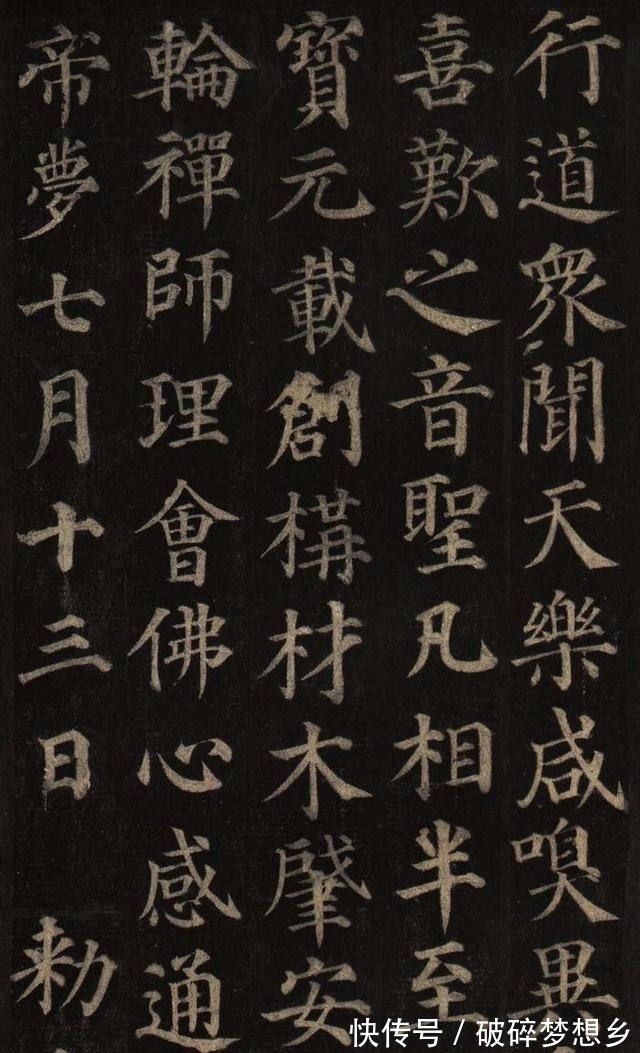 行道眾聞天樂咸嗅異
喜歎之音聖凡相半至
寶元載創構材木肇安
輪禪師理會佛心感通
帝夢七月十三日勑
快传号 / 破碎梦想乡